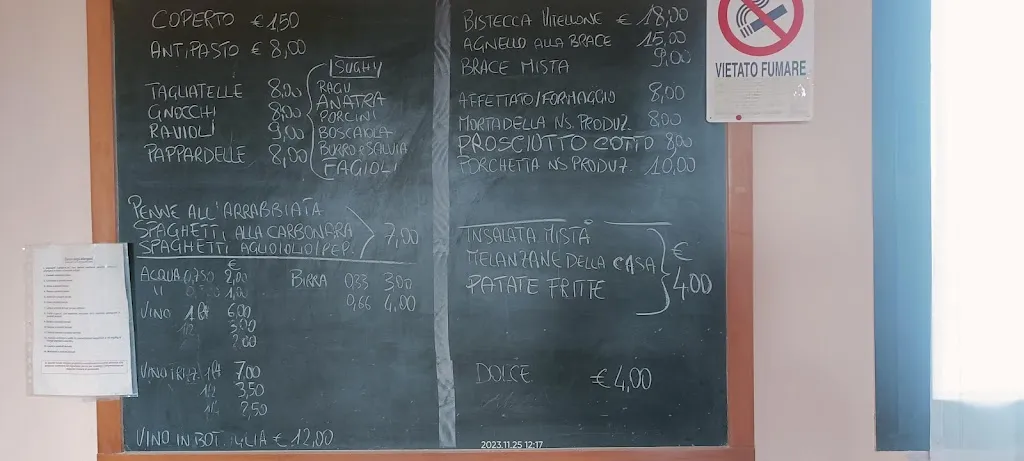 COPERTO € 1,50
ANTIPASTO € 8,00
TAGLIATELLE 8,00
GNOCCHI 8,00
RAVIOLI 9,00
PAPPARDELLE 8,00
SUGHI
RAGU
ANATRA
PORCINI
BOSCAIOLA
BURRO E SALVIA
FAGIOLI
PENNE ALL'ARRABBIATA
SPAGHETTI ALLA CARBONARA
SPAGHETTI AGLIO/OLIO/PEP.
7,00
€
ACQUA 0,750 2,00
" 1,00
VINO 1 lt 6,00
1/2 3,00
2,00
BIRRA 0,33 3,00
0,66 4,00
VINO 1 lt 7,00
1/2 3,50
1/4 2,50
VINO IN BOTTIGLIA € 12,00
BISTECCA VITELLONE € 18,00
AGNELLO ALLA BRACE 15,00
BRACE MISTA 9,00
AFFETTATO/FORMAGGIO 8,00
MORTADELLA NS. PRODUZ. 8,00
PROSCIUTTO COTTO 8,00
PORCHETTA NS PRODUZ. 10,00
INSALATA MISTA
MELANZANE DELLA CASA
PATATE FRITTE
€
4,00
DOLCE € 4,00
VIETATO FUMARE
2023.11.25 12:17